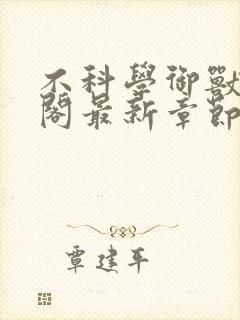 不科學御獸
閣最新章節
覃建平